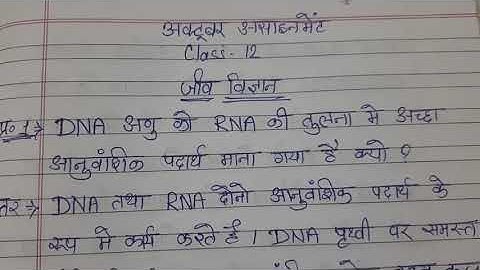 अक्टूबर असाइनमेंट
Class - 12
जीव विज्ञान
प्र० 1→ DNA अणु को RNA की तुलना मे अच्छा
आनुवांशिक पदार्थ माना गया है क्यो ?
तर → DNA तथा RNA दोनो आनुवांशिक पदार्थ के
रूप मे कार्य करते है। DNA पृथ्वी पर समस्त